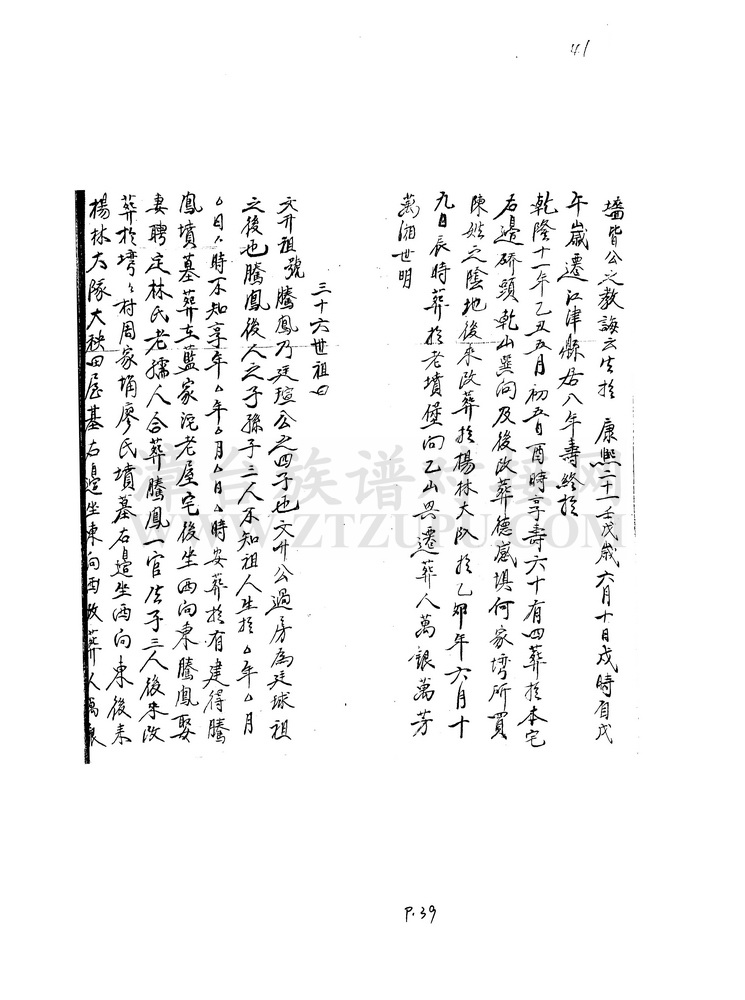 41
墻皆公之教誨云生於 康熙二十一壬戌歲六月十日戌時自戊
午歲遷江津縣居八年壽終於
乾隆十一年乙丑五月初五日酉時享壽六十有四葬於本宅
右邊硚頭乾山巽向及後改葬德感垻何家塆所買
陳姓之陰地後來改葬於楊林大队於乙卯年六月十
九日辰時葬於老墳堡一向乙山兴遷葬人萬銀萬芳
萬湘世明
三十六世祖曰
文升祖號騰鳳乃廷瑄公之四子也文升公過房為廷球祖
之後也騰鳳後人之子孫子三人不知祖人生於△年△月
△日△時不知享年△年△月△日△時安葬於有建得騰
鳳墳墓葬在藍家沱老屋宅後坐西向東騰鳳娶
妻聘定林氏老孺人合葬騰鳳一官生子三人後來改
葬於塆塆村周家埇廖氏墳墓右邊坐西向東後来
楊林大隊大秧田屋基右邊坐東向西改葬人萬銀
漳台族谱对接网
WWW.ZTZUPU.COM
P.39